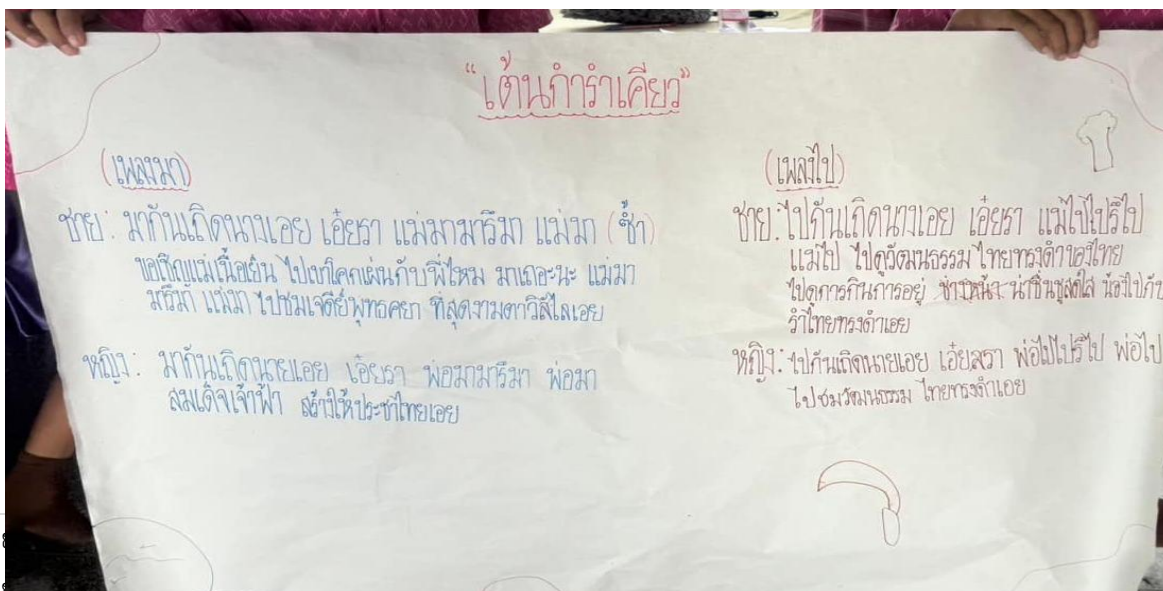 “เต้นกำรำเคียว”
(เพลงมา)
ชาย: มากันเถิดนางเอย เอ๋ยรา แม่มามารึมา แม่มา (ซ้ำ)
ขอเชิญแม่เนื้อเย็น ไปเขาโคกเผ่นกับพี่ไหม มาเถอะนะ แม่มา
มารึมา แม่มา ไปชมเจดีย์พุทธคยา ที่สุดงามตาวิลัไลเอย
หญิง: มากันเถิดนายเอย เอ๋ยรา พ่อมามารึมา พ่อมา
สมเด็จเจ้าฟ้า สร้างให้ประชาไทยเอย
(เพลงไป)
ชาย: ไปกันเถิดนางเอย เอ๋ยรา แม่ไปไปรึไป
แม่ไป ไปดูวัฒนธรรม ไทยทรงดำของไทย
ไปดูการกินการอยู่ น่าชื่นชูสดใส น้องไปกับ
รำไทยทรงดำเอย
หญิง: ไปกันเถิดนายเอย เอ๋ยสรา พ่อไปไปรึไป พ่อไป
ไปชมวัฒนธรรม ไทยทรงดำเอย